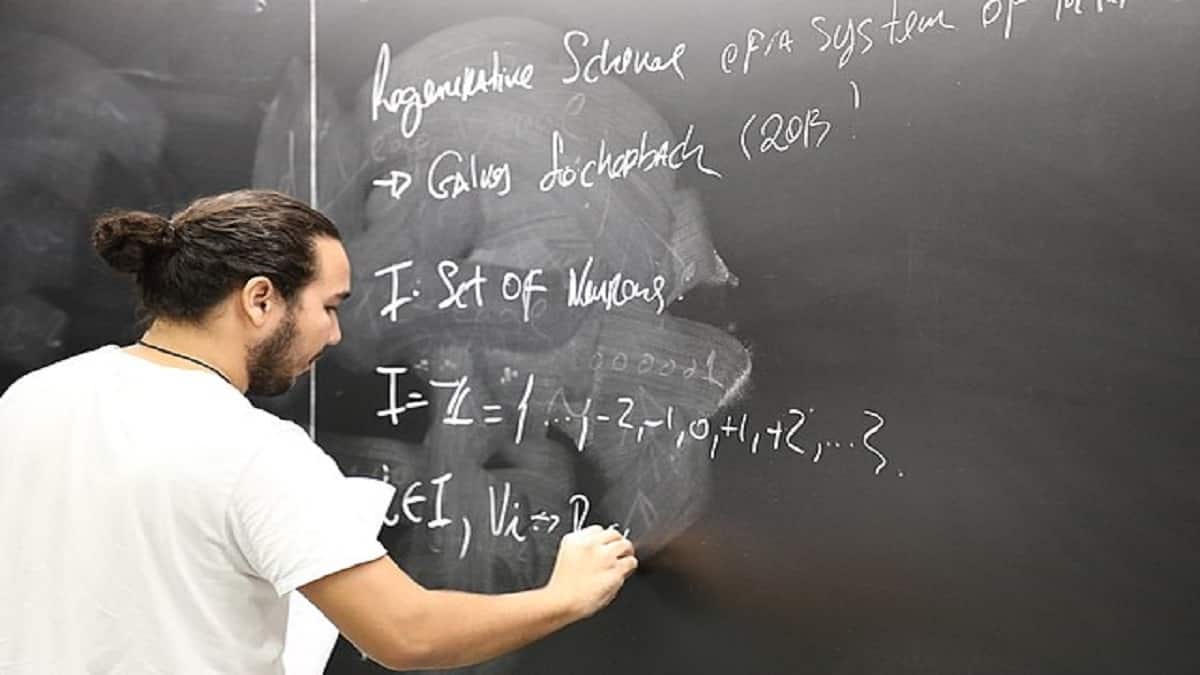 Regenerative Scheme system of
→ Galves Löcherbach (2013)
I: Set of Neurons.
000001
I = ℤ = {..., -2, -1, 0, +1, +2, ...}.
i ∈ I, Vi ↔